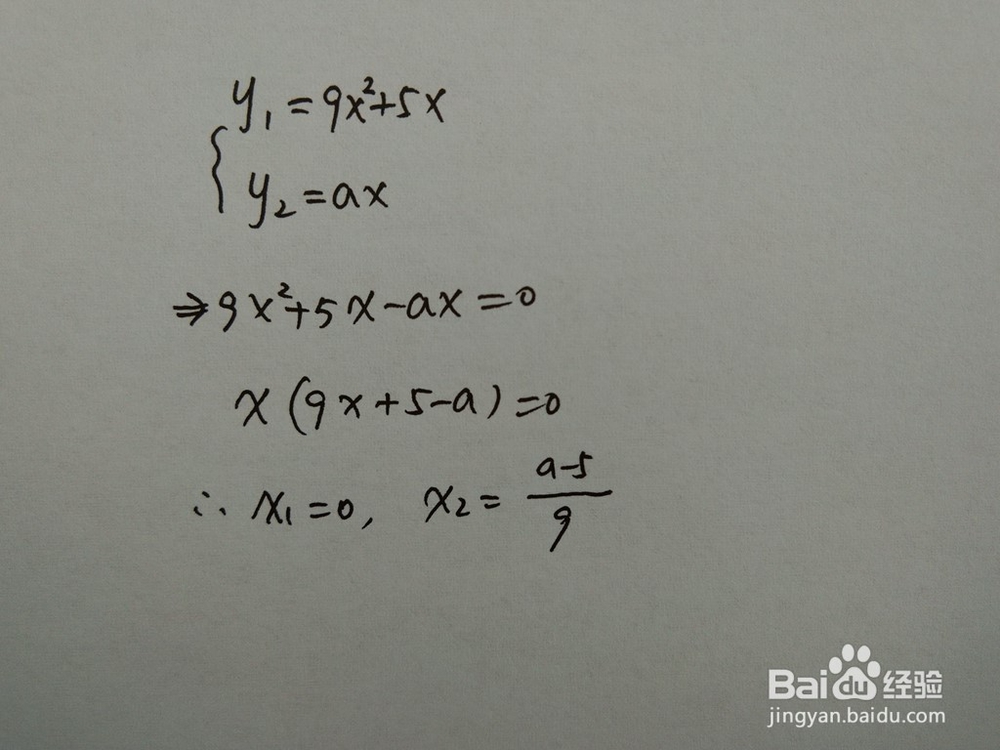 y₁=9x²+5x
y₂=ax
⇒9x²+5x-ax=0
x(9x+5-a)=0
∴ x₁=0, x₂=(a-5)/9
Baidu经验
jingyan.baidu.com